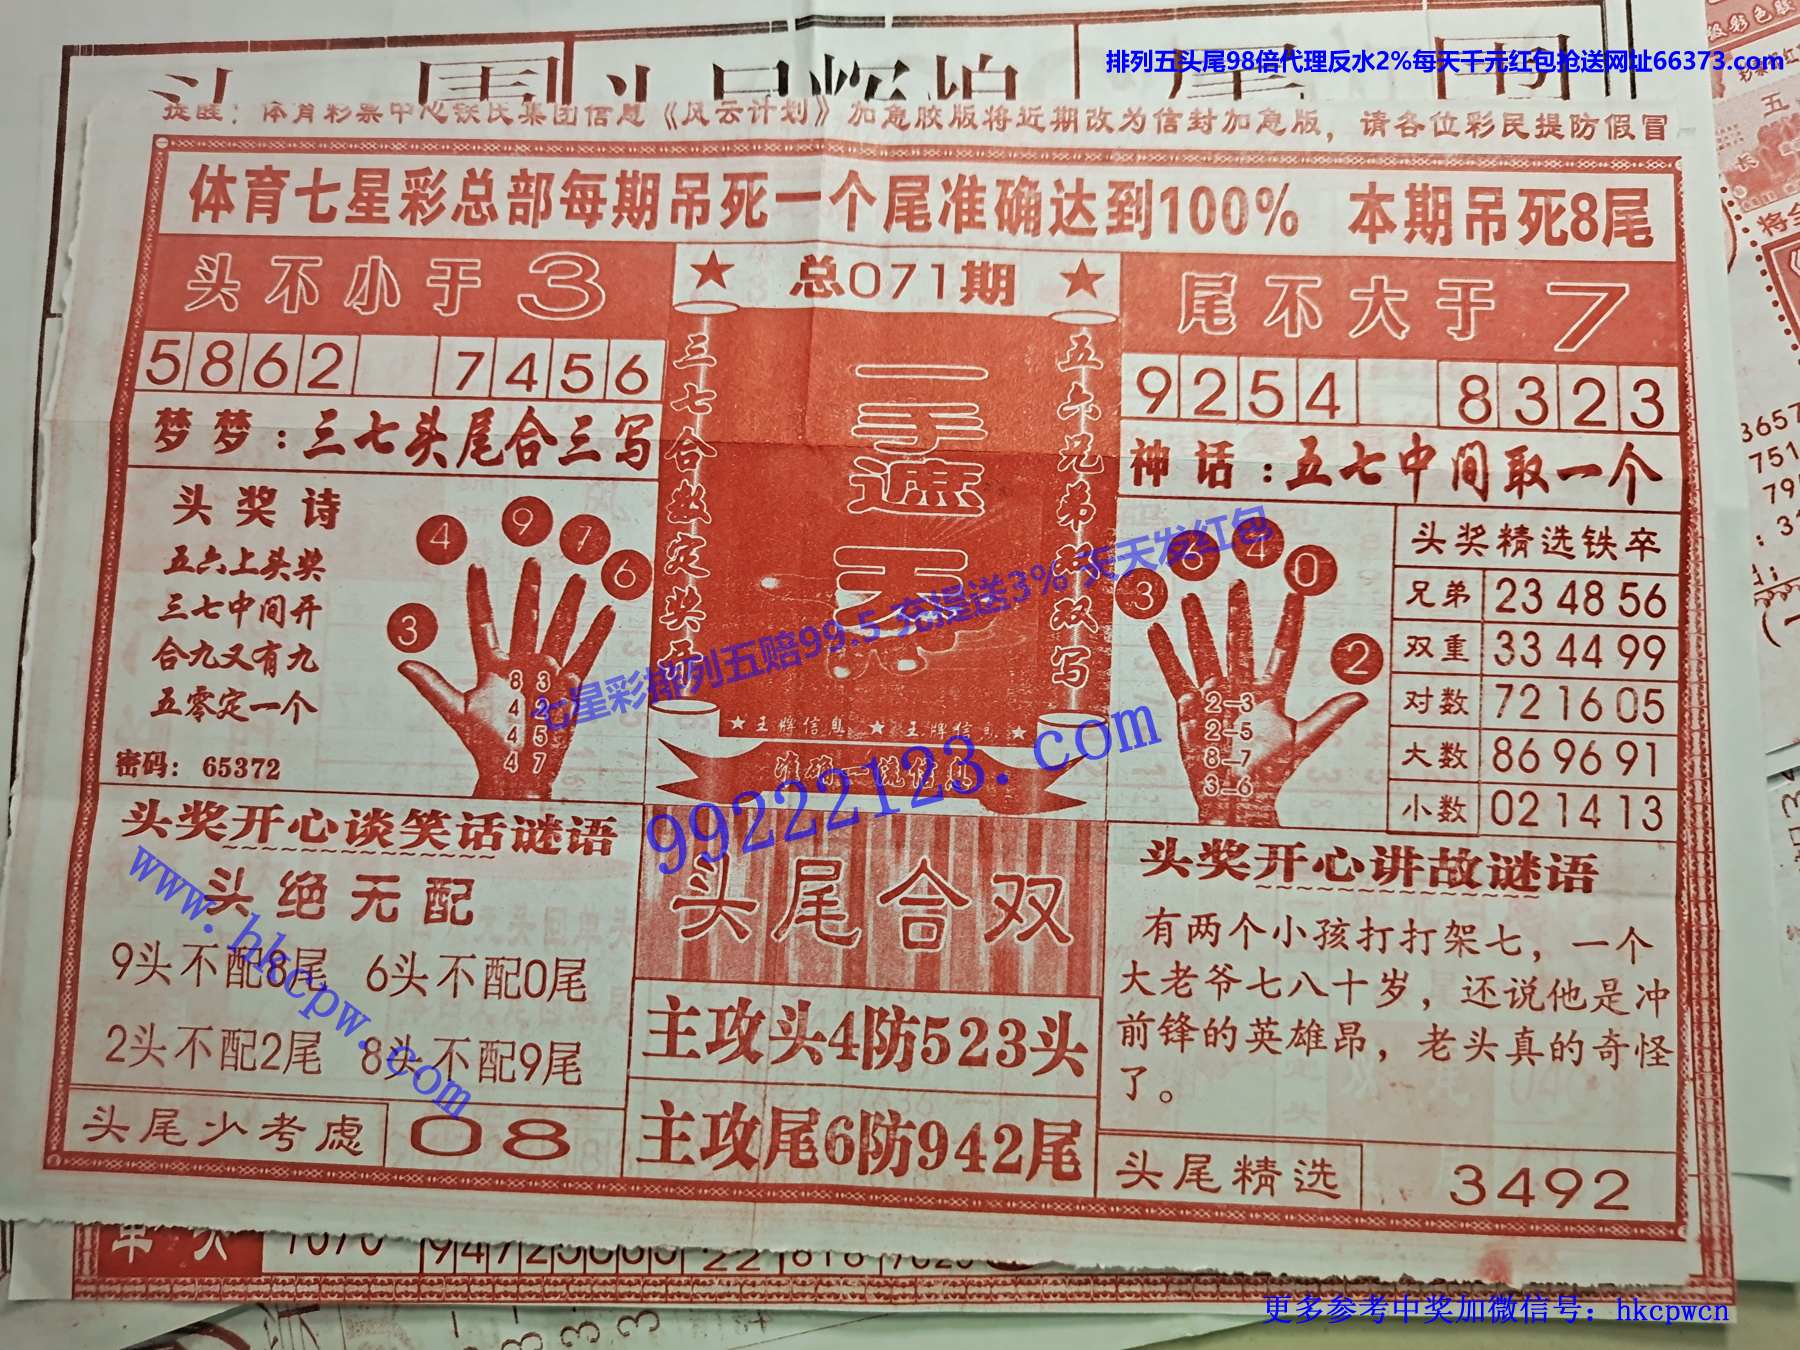 排列五头尾98倍代理反水2%每天千元红包抢送网址66373.com
提醒：体育彩票中心铁氏集团信息《风云计划》加急胶版将近期改为信封加急版，请各位彩民提防假冒
体育七星彩总部每期吊死一个尾准确达到100% 本期吊死8尾
头不小于3
总071期
尾不大于7
5862 7456
9254 8323
梦梦：三七头尾合三写
神话：五七中间取一个
三七合数定奖号
一手遮天
五六兄弟双写
王牌信息 王牌信息
准确一流信息
头奖诗
五六上头奖
三七中间开
合九又有九
五零定一个
密码：65372
3 4 9 7 6
8 3
4 2
4 5
4 7
3 6 4 0 2
2-3
2-5
8-7
3-6
头奖精选铁卒
兄弟 23 48 56
双重 33 44 99
对数 72 16 05
大数 86 96 91
小数 02 14 13
七星彩排列五赔99.5 充提送3% 天天发红包
99222123.com
www.hkcpw.com
头奖开心谈笑话谜语
头绝无配
9头不配8尾 6头不配0尾
2头不配2尾 8头不配9尾
头尾少考虑 08
头尾合双
主攻头4防523头
主攻尾6防942尾
头奖开心讲故谜语
有两个小孩打打架七，一个
大老爷七八十岁，还说他是冲
前锋的英雄昂，老头真的奇怪
了。
头尾精选 3492
更多参考中奖加微信号：hkcpwcn